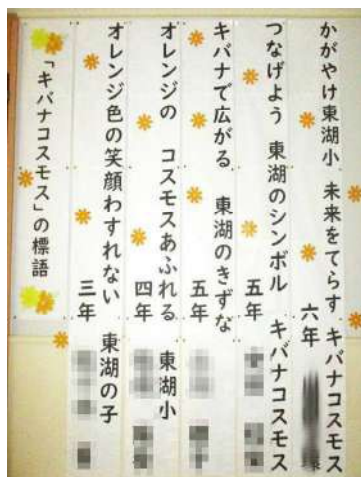 かがやけ東湖小 未来をてらす キバナコスモス
六年
つなげよう 東湖のシンボル キバナコスモス
五年
キバナで広がる 東湖のきずな
五年
オレンジの コスモスあふれる 東湖小
四年
オレンジ色の笑顔わすれない 東湖の子
三年
「キバナコスモス」の標語